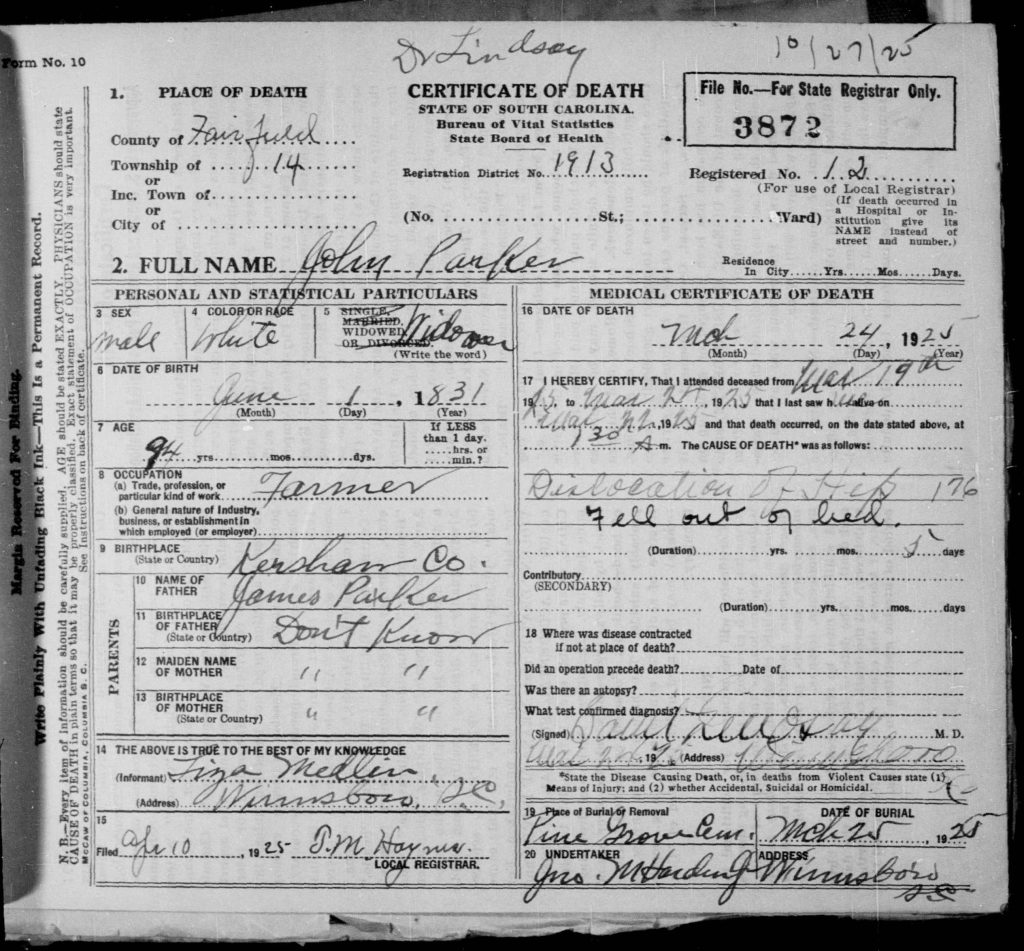 Dr Lindsay
10/27/25
Form No. 10
1. PLACE OF DEATH
County of Fairfield
Township of 14
or
Inc. Town of
or
City of
CERTIFICATE OF DEATH
STATE OF SOUTH CAROLINA.
Bureau of Vital Statistics
State Board of Health
Registration District No. 1913
(No. St.; Ward)
File No.—For State Registrar Only.
3872
Registered No. 12
(For use of Local Registrar)
(If death occurred in
a Hospital or In-
stitution give its
NAME instead of
street and number.)
2. FULL NAME John Parker
Residence
In City Yrs. Mos. Days.
PERSONAL AND STATISTICAL PARTICULARS
3 SEX
male
4 COLOR OR RACE
White
5 SINGLE,
MARRIED,
WIDOWED
OR DIVORCED.
Widower
(Write the word)
6 DATE OF BIRTH
June 1, 1831
(Month) (Day) (Year)
7 AGE
94 yrs. mos. dys.
If LESS
than 1 day.
hrs. or
min.?
8 OCCUPATION
(a) Trade, profession, or
particular kind of work Farmer
(b) General nature of Industry,
business, or establishment in
which employed (or employer)
9 BIRTHPLACE
(State or Country) Kershaw Co.
PARENTS
10 NAME OF
FATHER James Parker
11 BIRTHPLACE
OF FATHER
(State or Country) Don't Know
12 MAIDEN NAME
OF MOTHER " "
13 BIRTHPLACE
OF MOTHER
(State or Country) " "
14 THE ABOVE IS TRUE TO THE BEST OF MY KNOWLEDGE
(Informant) Liza Medlin
(Address) Winnsboro, S.C.
15
Filed Apr 10, 1925 T.M. Haynes
LOCAL REGISTRAR.
MEDICAL CERTIFICATE OF DEATH
16 DATE OF DEATH
Mch 24, 1925
(Month) (Day) (Year)
17 I HEREBY CERTIFY, That I attended deceased from Mar 19th
1925 to Mar 24 1925 that I last saw h alive on
Mar 22, 1925 and that death occurred, on the date stated above, at
1 30 A m. The CAUSE OF DEATH* was as follows:
Dislocation of Hip 176
Fell out of bed.
(Duration) yrs. mos. 5 days
Contributory
(SECONDARY)
(Duration) yrs. mos. days
18 Where was disease contracted
if not at place of death?
Did an operation precede death? Date of
Was there an autopsy?
What test confirmed diagnosis?
(Signed) Lindsay M. D.
(Address) Winnsboro
*State the Disease Causing Death, or, in deaths from Violent Causes state (1)
Means of Injury; and (2) whether Accidental, Suicidal or Homicidal.
SC
19 Place of Burial or Removal
Pine Grove Cem.
DATE OF BURIAL
Mch 25, 1925
20 UNDERTAKER
Jno. M Harding
ADDRESS
Winnsboro
SC
Margin Reserved For Binding.
Write Plainly With Unfading Black Ink—This Is a Permanent Record.
N. B.—Every item of information should be carefully supplied. AGE should be stated EXACTLY. PHYSICIANS should state
CAUSE OF DEATH in plain terms so that it may be properly classified. Exact statement of OCCUPATION is very important.
See Instructions on back of certificate.
McCAW OF COLUMBIA, COLUMBIA S. C.